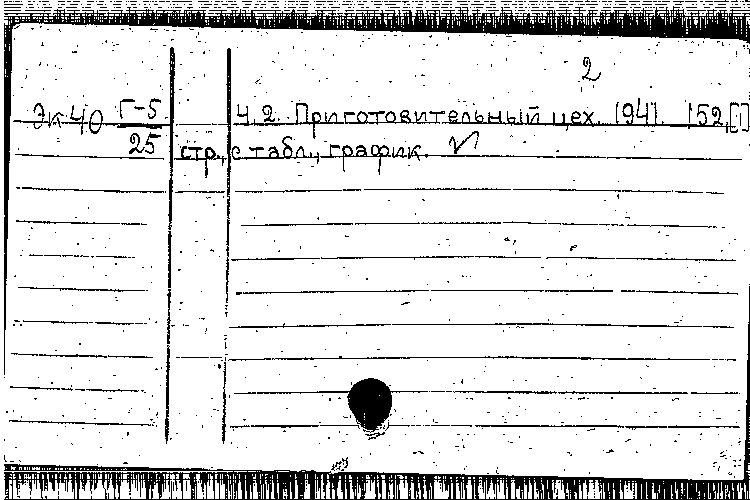 2
Эк40 Г-5/25 Ч.2. Приготовительный цех. 1941. 152,[1]
стр., с табл., график. V